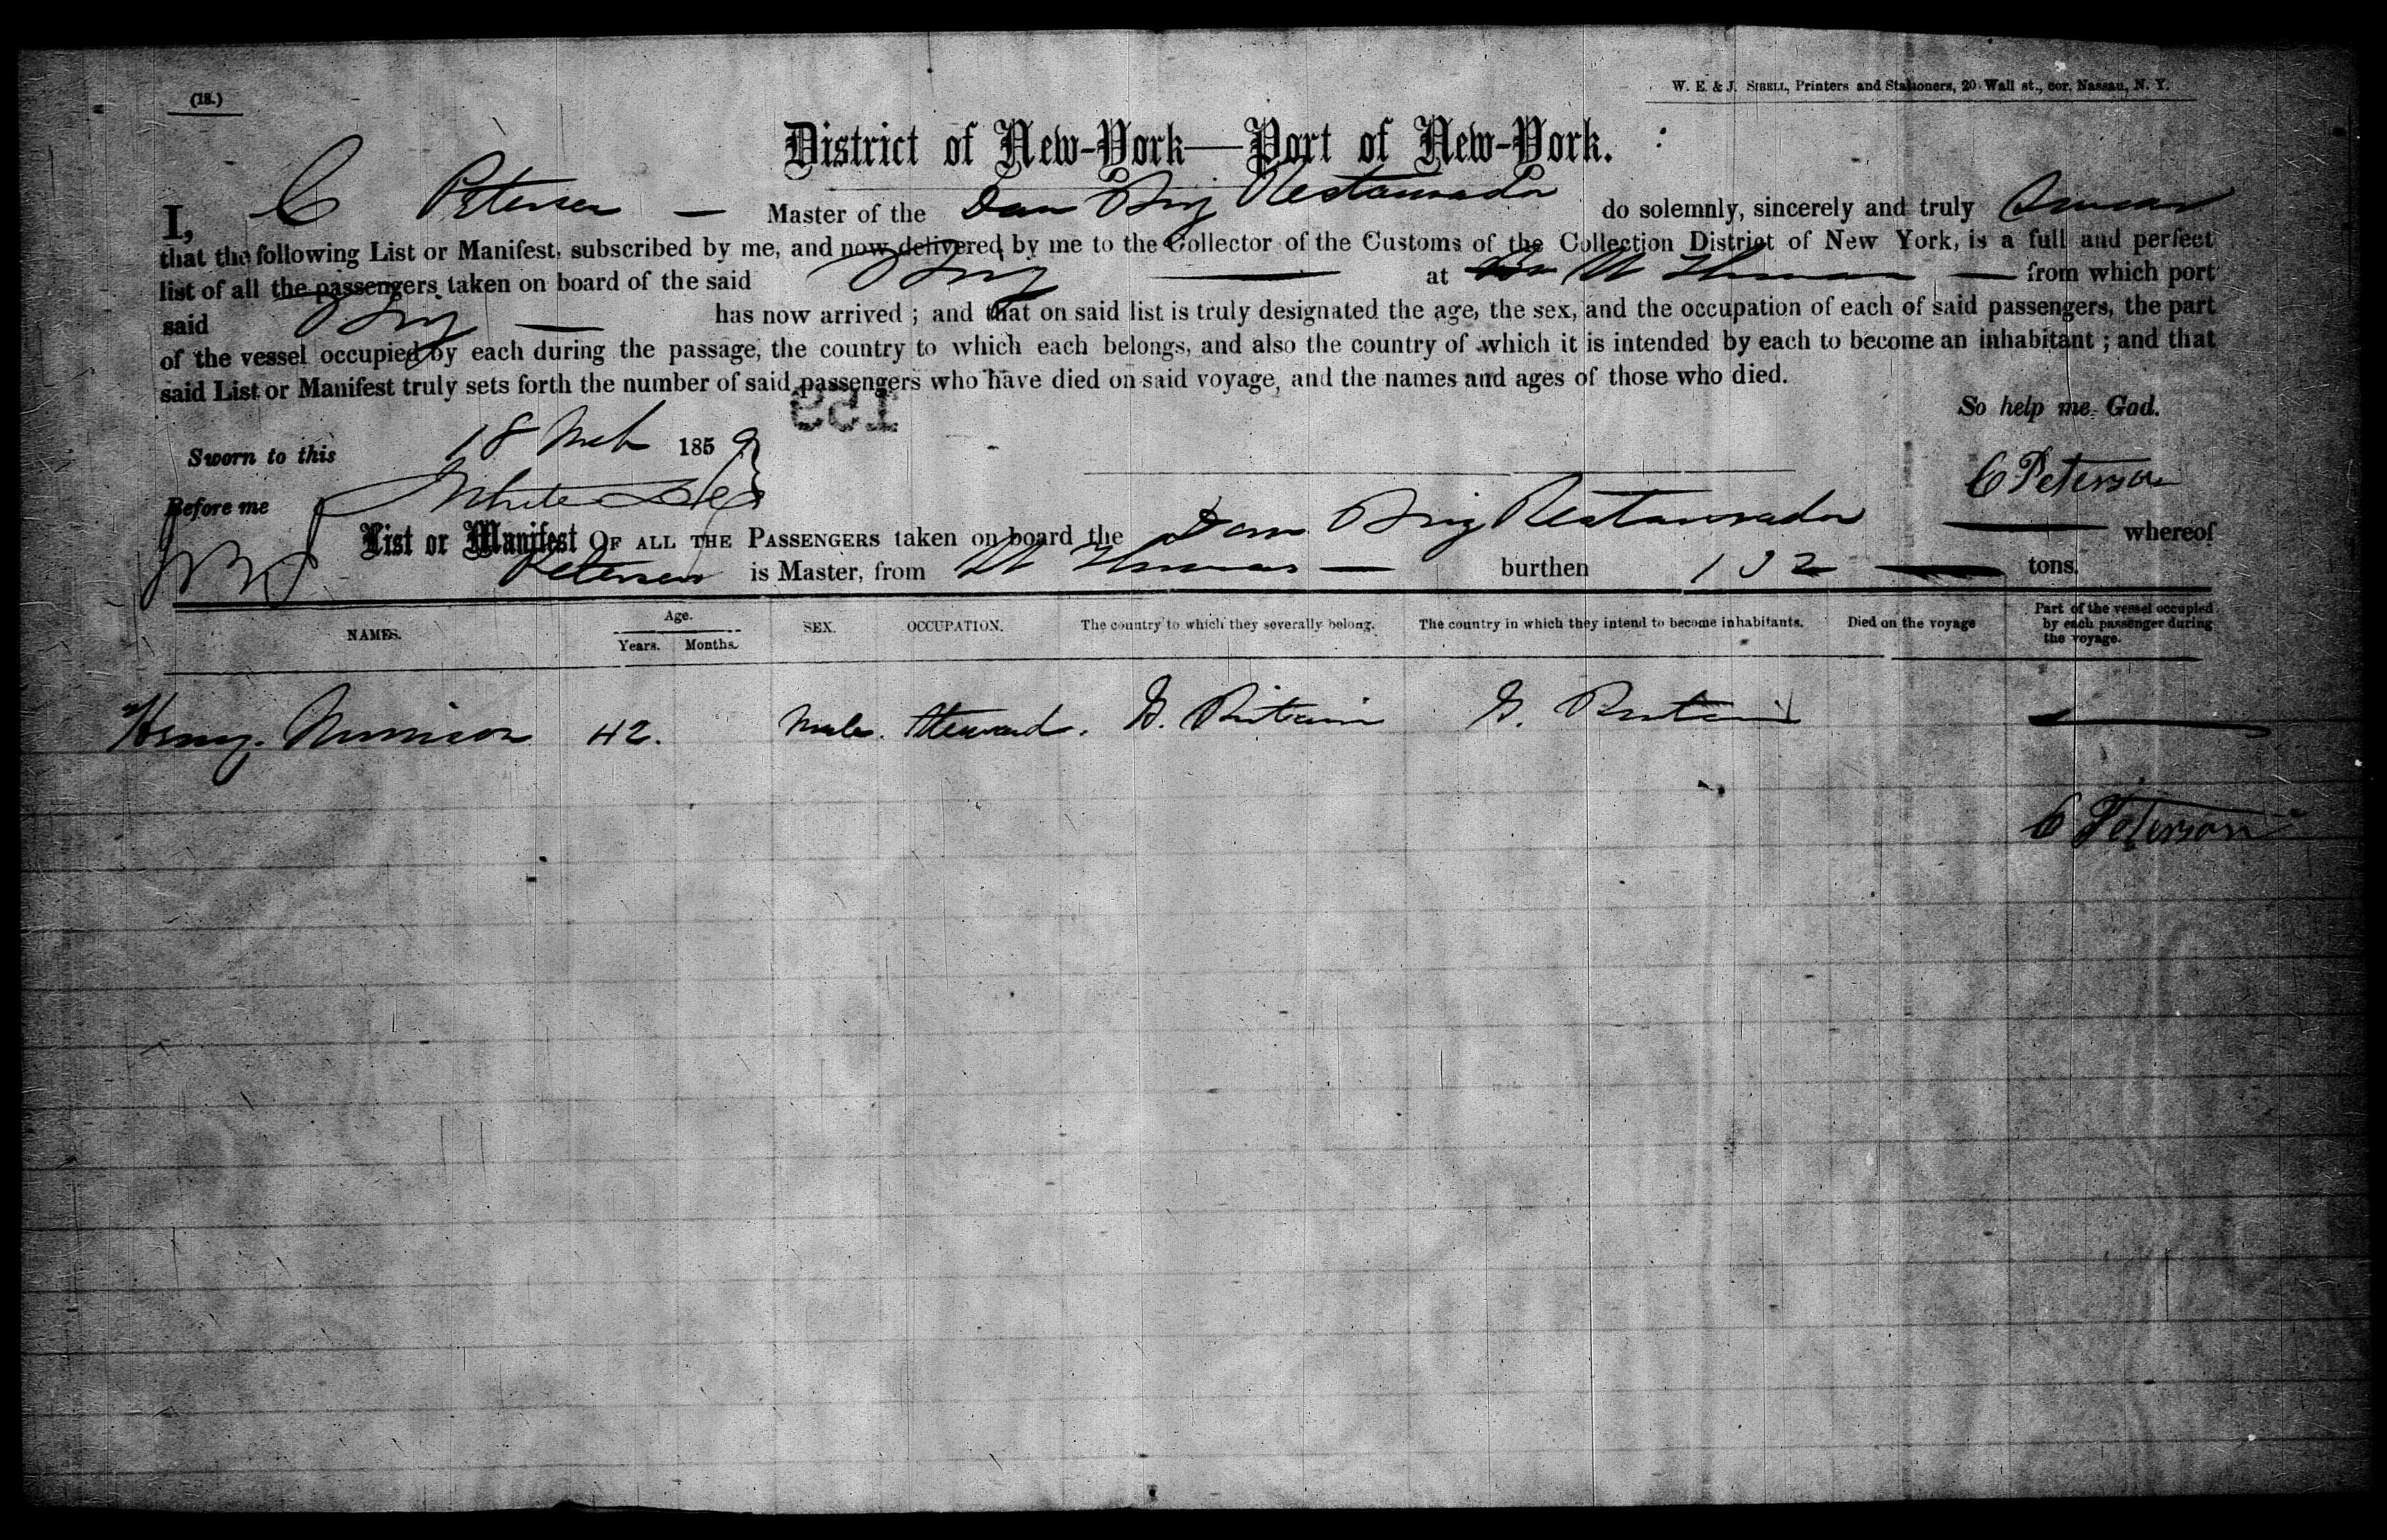 (18.)
W. E. & J. SIBELL, Printers and Stationers, 20 Wall st., cor. Nassau, N. Y.
District of New-York—Port of New-York.
I, C Petersen — Master of the Dan Brig Restaurador do solemnly, sincerely and truly Swear
that the following List or Manifest, subscribed by me, and now delivered by me to the Collector of the Customs of the Collection District of New York, is a full and perfect
list of all the passengers taken on board of the said Brig — at St Thomas — from which port
said Brig — has now arrived ; and that on said list is truly designated the age, the sex, and the occupation of each of said passengers, the part
of the vessel occupied by each during the passage, the country to which each belongs, and also the country of which it is intended by each to become an inhabitant ; and that
said List or Manifest truly sets forth the number of said passengers who have died on said voyage, and the names and ages of those who died.
So help me God.
159
Sworn to this 18 Mch 1859
C Peterson
Before me White
List or Manifest OF ALL THE PASSENGERS taken on board the Dan Brig Restaurador — whereof
Petersen is Master, from St Thomas — burthen 132 — tons.
NAMES. Age. Years. Months. SEX. OCCUPATION. The country to which they severally belong. The country in which they intend to become inhabitants. Died on the voyage Part of the vessel occupied by each passenger during the voyage.
Henry 42. Male. Steward. G. Britain G. Britain —
C Peterson